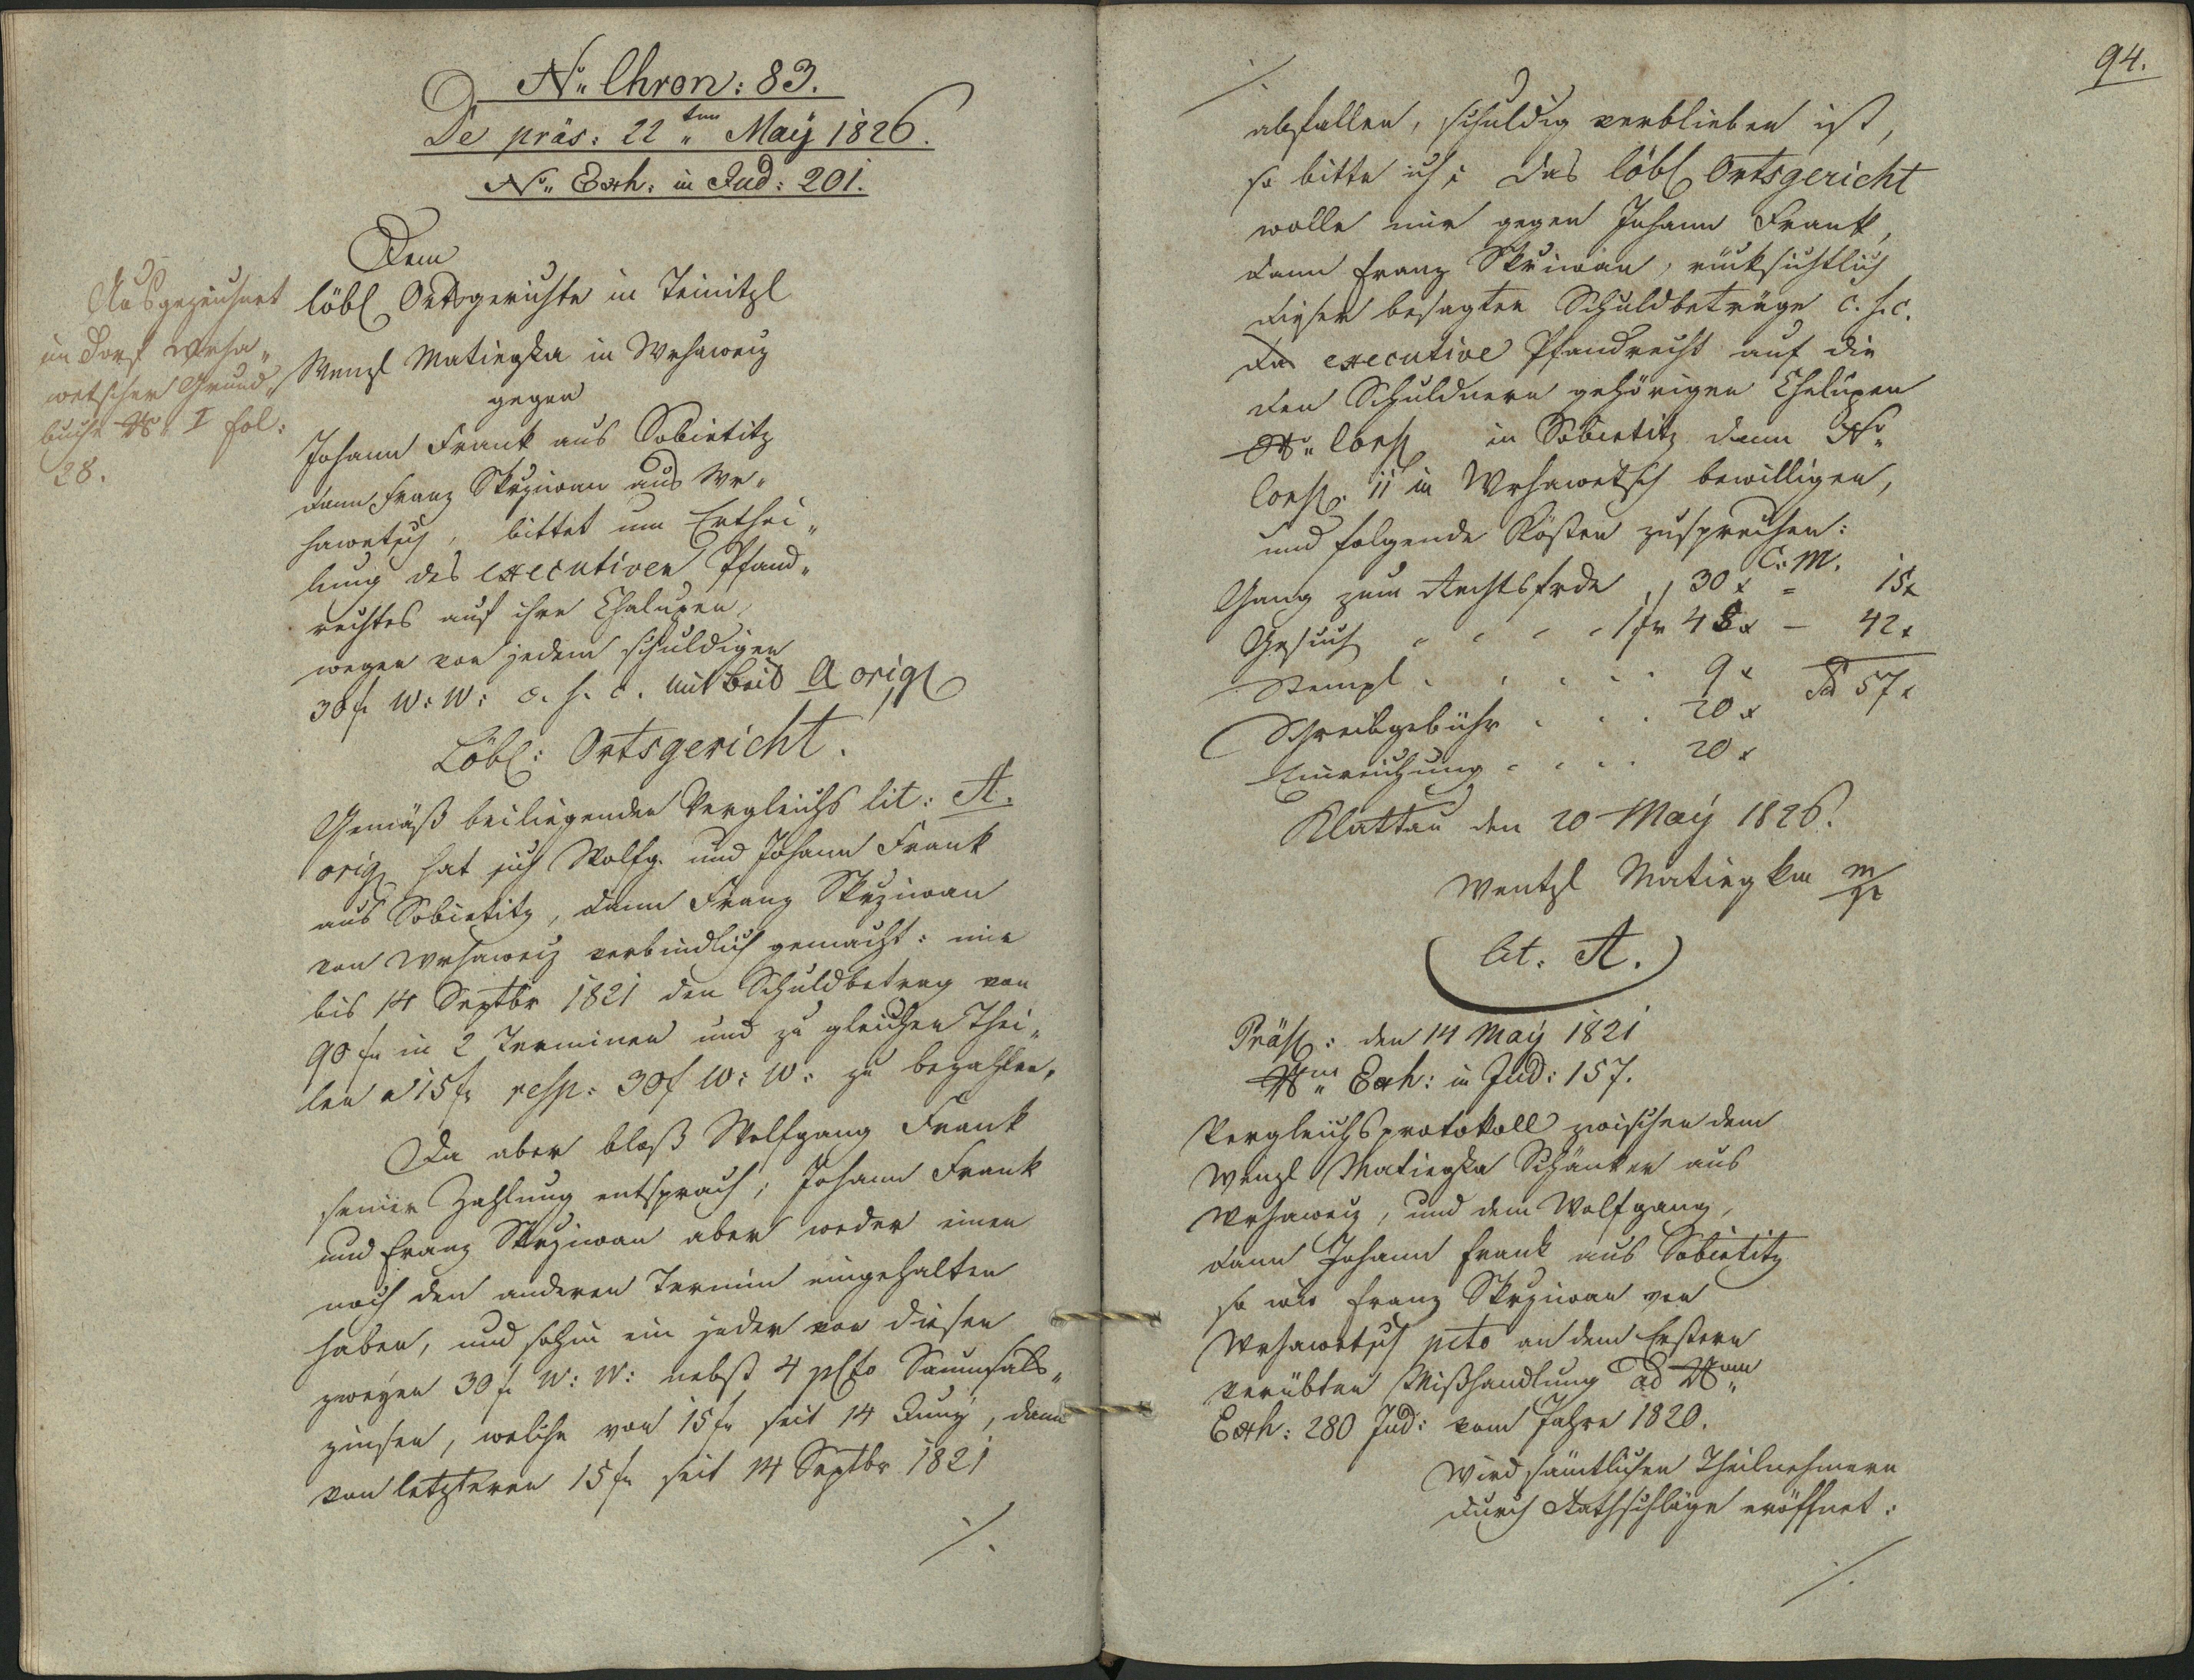 No. Chron: 83.
De präs: 22ten Maÿ 1826.
No. Exh: in Jud: 201.
Ausgezeichnet
im Dorf Wrha„
wetscher Grund„
buche No. I fol:
28.
Dem
löbl Ortsgerichte in Teinitzl
Wenzl Matiegka in Wrhaweiz
gegen
Johann Frank aus Sobietitz
dann Franz Skrziwan aus Wr„
hawetsch, bittet um Erthei„
lung des executiven Pfand„
rechtes auf ihre Chalupen,
wegen von jedem schuldigen
30 f W: W: c. s. c. mit Beil A orig
Löbl: Ortsgericht.
Gemäß beiliegenden Vergleichs lit: A.
orig hat sich Wolfg. und Johann Frank
aus Sobietitz, dann Franz Skrziwan
von Wrhaweiz verbindlich gemacht: mir
bis 14 Septbr 1821 den Schuldbetrag von
90 fr in 2 Terminen und zu gleichen Thei„
len a 15 fr resp: 30 f W: W: zu bezahlen.
Da aber bloß Wolfgang Frank
seiner Zahlung entsprach, Johann Frank
und Franz Skrziwan aber weder einen
noch den anderen Termin eingehalten
haben, und sohin ein jeder von diesen
zweÿen 30 f W: W: nebst 4 pcto Saumsals„
zinsen, welche von 15 fr seit 14 Junÿ, dann
von letzteren 15 fr seit 14 Septbr 1821
./.
94.
./.
abfallen, schuldig verblieben ist,
so bitte ich: das löbl Ortsgericht
wolle mir gegen Johann Frank,
dann Franz Skriwan, rücksichtlich
dieser besagten Schuldbeträge c. s. c.
das executive Pfandrecht auf die
den Schuldnern gehörigen Chalupen
No. Consc in Sobietitz dann No.
Consc. 11 in Wrhawetsch bewilligen,
und folgende Kösten zusprechen:
C: M.
Gang zum Rechtsfrde „ 30 x = 15 x
Gesuch „ „ „ „ 1 fr 48 x – 42 x
Stempl „ „ „ „ 9 x Sa 57 x
Schreibgebühr „ „ „ 20 x
Einreichung „ „ „ 20 x
Klattau den 20 Maÿ 1826.
Wentzl Matiegka m/p
lit. A.
Präs: den 14 Maÿ 1821
Nm. Exh: in Jud: 157.
Vergleichsprotokoll zwischen dem
Wenzl Matiegka Schänker aus
Wrhaweiz, und dem Wolfgang,
dann Johann Frank aus Sobietitz
so wie Franz Skrziwan von
Wrhawetsch pcto an dem Erstern
verübten Mißhandlung ad Num
Exh: 280 Jud: vom Jahre 1820.
Wird sämtlichen Theilnehmern
durch Rathschläge eröffnet:
./.